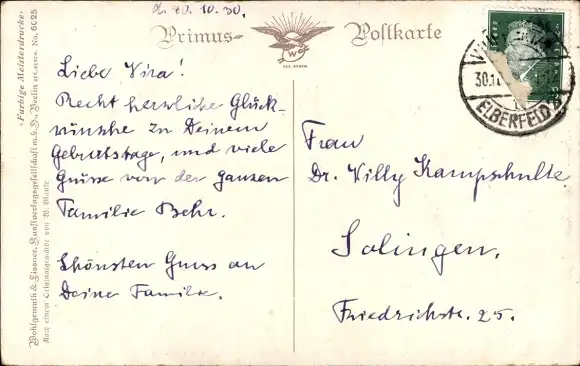 d. 30. 10. 30.
Primus- Postkarte
W
Liebe Vira!
Recht herzliche Glück-
wünsche zu Deinem
Geburtstage, und viele
Grüsse von der ganzen
Familie Behr.
Schönsten Gruss an
Deine Familie.
Frau
Dr. Willy Kampschulte
Solingen.
Friedrichstr. 25.
30.10
ELBERFELD 2
Wohlgemuth & Lissner, Kunstverlagsgesellschaft m.b.H., Berlin
»Farbige Meisterdrucke«
No. 6025
Nach einem Originalgemälde von